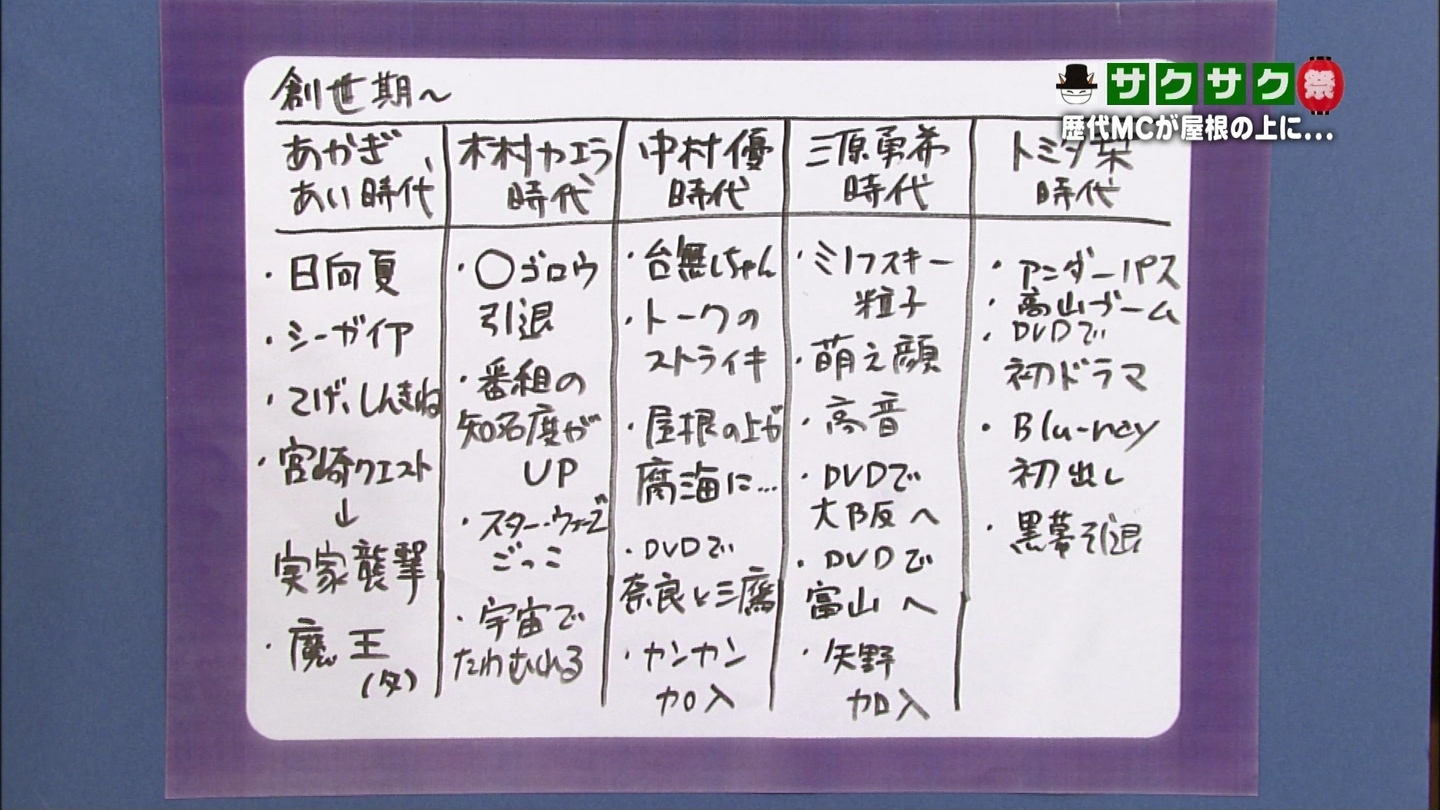 創世期～
サクサク祭
歴代MCが屋根の上に…
あかぎ
あい時代
・日向夏
・シーガイア
・てげ、しんきね
・宮崎クエスト
↓
実家襲撃
・魔王
(父)
木村カエラ
時代
・〇ゴロウ
引退
・番組の
知名度が
UP
・スター・ウォーズ
ごっこ
・宇宙で
たわむれる
中村優
時代
・台無しちゃん
・トークの
ストライキ
・屋根の上が
腐海に…
・DVDで
奈良と三鷹
・カンカン
加入
三原勇希
時代
・ミノフスキー
粒子
・萌え顔
・高音
・DVDで
大阪へ
・DVDで
富山へ
・矢野
加入
トミタ栞
時代
・アンダーパス
・高山ブーム
・DVDで
初ドラマ
・Blu-ray
初出し
・黒幕引退